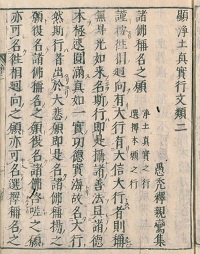 顯淨土真實行文類二
愚禿釋親鸞集
諸佛稱名之願
淨土真實之行
選擇本願之行
謹按往相迴向有大行有大信大行者則稱
無㝵光如來名斯行即是攝諸善法具諸德
本極速圓滿真如一實功德寶海故名大行
然斯行者出於大悲願即是名諸佛稱揚之
願復名諸佛稱名之願復名諸佛咨嗟之願
亦可名往相迴向之願亦可名選擇稱名之